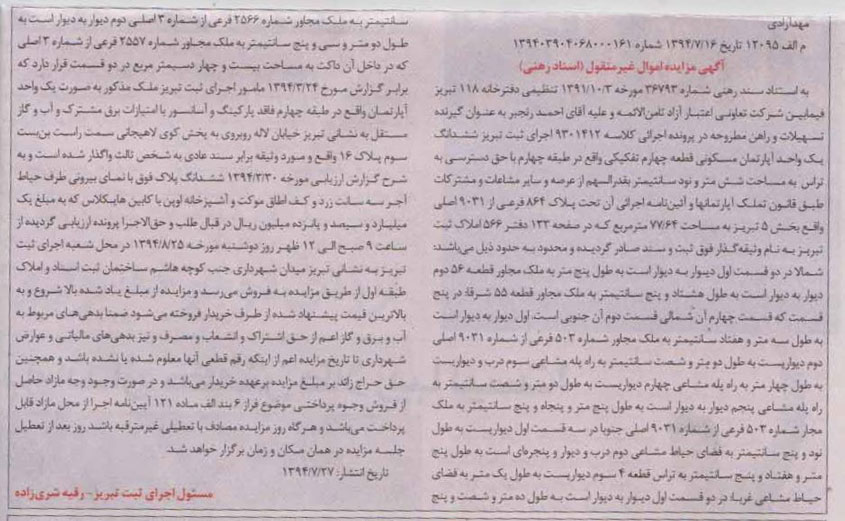 مهدآزادی
م الف ۱۲۰۹۵ تاریخ ۱۳۹۴/۷/۱۶ شماره ۱۳۹۴۰۳۹۰۴۰۶۸۰۰۰۱۶۱
آگهی مزایده اموال غیرمنقول (اسناد رهنی)
به استناد سند رهنی شماره ۳۶۷۹۳ مورخه ۱۳۹۱/۱۰/۳ تنظیمی دفترخانه ۱۱۸ تبریز
فیمابین شرکت تعاونی اعتبار آزاد ثامن‌الائمه و علیه آقای احمد رنجبر به عنوان گیرنده
تسهیلات و راهن مطروحه در پرونده اجرائی کلاسه ۹۳۰۱۴۱۲ اجرای ثبت تبریز ششدانگ
یک واحد آپارتمان مسکونی قطعه چهارم تفکیکی واقع در طبقه چهارم با حق دسترسی به
تراس به مساحت شش متر و نود سانتیمتر بقدرالسهم از عرصه و سایر مشاعات و مشترکات
طبق قانون تملک آپارتمانها و آئین‌نامه اجرائی آن تحت پلاک ۸۶۴ فرعی از ۹۰۳۱ اصلی
واقع بخش ۵ تبریز به مساحت ۷۷/۶۴ مترمربع که در صفحه ۱۳۳ دفتر ۵۶۶ املاک ثبت
تبریز به نام وثیقه‌گذار فوق ثبت و سند صادر گردیده و محدود به حدود ذیل می‌باشد:
شمالا در دو قسمت اول دیوار به دیوار است به طول پنج متر به ملک مجاور قطعه ۵۶ دوم
دیوار به دیوار است به طول هشتاد و پنج سانتیمتر به ملک مجاور قطعه ۵۵ شرقا: در پنج
قسمت که قسمت چهارم آن شمالی قسمت دوم آن جنوبی است. اول دیوار به دیوار است به
طول سه متر و هفتاد سانتیمتر به ملک مجاور شماره ۵۰۳ فرعی از شماره ۹۰۳۱ اصلی
دوم دیواریست به طول دو متر و شصت سانتیمتر به راه پله مشاعی سوم درب و دیواریست
به طول چهار متر به راه پله مشاعی چهارم دیواریست به طول دو متر و شصت سانتیمتر به
راه پله مشاعی پنجم دیوار به دیوار است به طول پنج متر و پنجاه و پنج سانتیمتر به ملک
مجار شماره ۵۰۳ فرعی از شماره ۹۰۳۱ اصلی جنوبا در سه قسمت اول دیواریست به طول
نود و پنج سانتیمتر به فضای حیاط مشاعی دوم درب و دیوار و پنجره‌ای است به طول پنج
متر و هفتاد و پنج سانتیمتر به تراس قطعه ۴ سوم دیواریست به طول یک متر به فضای
حیاط مشاعی غربا: در دو قسمت اول دیوار به دیوار است به طول ده متر و شصت و پنج
سانتیمتر به ملک مجاور شماره ۲۵۶۶ فرعی از شماره ۳ اصلی دوم دیوار به دیوار است به
طول دو متر و سی و پنج سانتیمتر به ملک مجاور شماره ۲۵۵۷ فرعی از شماره ۳ اصلی
که در داخل آن داکت به مساحت بیست و چهار دسیمتر مربع در دو قسمت قرار دارد که
برابر گزارش مورخ ۱۳۹۴/۳/۲۴ مامور اجرای ثبت تبریز ملک مذکور به صورت یک واحد
آپارتمان واقع در طبقه چهارم فاقد پارکینگ و آسانسور با امتیازات برق مشترک و آب و گاز
مستقل به نشانی تبریز خیابان لاله روبروی به پخش کوی لاهیجانی سمت راست بن‌بست
سوم پلاک ۱۶ واقع و مورد وثیقه برابر سند عادی به شخص ثالث واگذار شده است و به
شرح گزارش ارزیابی مورخه ۱۳۹۴/۳/۳۰ ششدانگ پلاک فوق با نمای بیرونی طرف حیاط
آجر سه سانت زرد و کف اطاق موکت و آشپزخانه اوپن با کابین هایکلاس که به مبلغ یک
میلیارد و سیصد و پانزده میلیون ریال در قبال طلب و حق‌الاجرا پرونده ارزیابی گردیده از
ساعت ۹ صبح الی ۱۲ ظهر روز دوشنبه مورخه ۱۳۹۴/۸/۲۵ در محل شعبه اجرای ثبت
تبریز به نشانی تبریز میدان شهرداری جنب کوچه هاشم ساختمان ثبت اسناد و املاک
طبقه اول از طریق مزایده به فروش می‌رسد و مزایده از مبلغ یاد شده بالا شروع و به
بالاترین قیمت پیشنهاد شده از طرف خریدار فروخته می‌شود ضمنا بدهی‌های مربوط به
آب و برق و گاز اعم از حق اشتراک و انشعاب و مصرف و نیز بدهی‌های مالیاتی و عوارض
شهرداری تا تاریخ مزایده اعم از اینکه رقم قطعی آنها معلوم شده یا نشده باشد و همچنین
حق حراج زائد بر مبلغ مزایده برعهده خریدار می‌باشد و در صورت وجود وجه مازاد حاصل
از فروش وجوه پرداختی موضوع فراز ۶ بند الف ماده ۱۲۱ آیین‌نامه اجرا از محل مازاد قابل
پرداخت می‌باشد و هرگاه روز مزایده مصادف با تعطیلی غیرمترقبه باشد روز بعد از تعطیل
جلسه مزایده در همان مکان و زمان برگزار خواهد شد.
تاریخ انتشار: ۱۳۹۴/۷/۲۷
مسئول اجرای ثبت تبریز - رقیه شری‌زاده